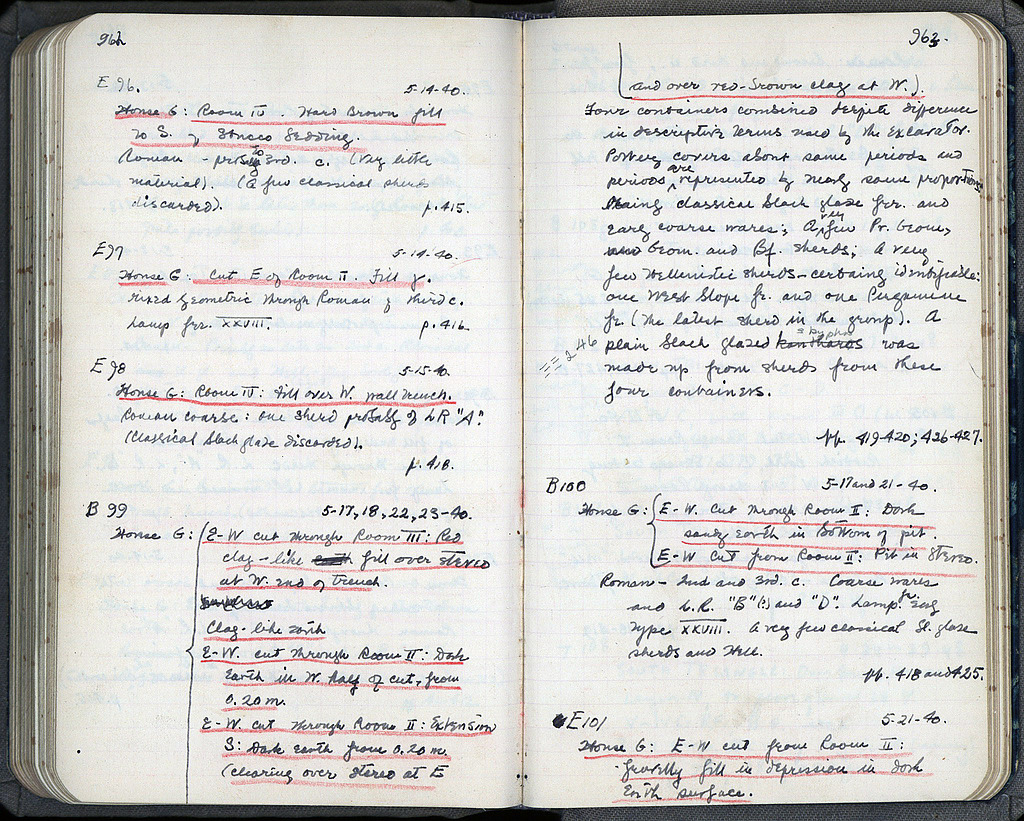 962
E 96. 5-14-40.
House G: Room IV. Hard Brown fill
to S. of Stucco Bedding.
Roman - prob. to 3rd. c. (Very little
material). (A few classical sherds
discarded). p. 415.
E 97 5-14-40.
House G: Cut E of Room II. Fill of.
Mixed Geometric through Roman of third c.
Lamp frr. XXVIII. p. 416.
E 98 5-15-40.
House G: Room IV: Fill over W. wall trench.
Roman coarse: one sherd probably of LR "A".
(Classical black glaze discarded).
p. 418.
B 99 5-17, 18, 22, 23-40.
House G: E-W cut through Room III: Red
clay-like fill over stereo
at W. end of trench.
Clay-like earth
E-W. cut through Room II: Dark
Earth in W. half of cut, from
0.20 m.
E-W. cut through Room II: Extension
S: Dark earth from 0.20 m.
(clearing over stereo at E
963.
and over red-brown clay at W.).
Four containers combined despite difference
in descriptive terms used by the Excavator.
Pottery covers about same periods and
periods are represented by nearly same proportions:
being classical black glaze frr. and
early coarse wares; A very few Pr. Geom,
Geom. and Bf. sherds; A very
few Hellenistic sherds - certaing identifiable:
one West Slope fr. and one Pergamene
fr. (the latest sherd in the group). A
246 plain black glazed kantharos skyphos was
made up from sherds from these
four containers.
pp. 419-420; 426-427.
B 100 5-17 and 21-40.
House G: E-W. Cut through Room II: Dark
sandy Earth in bottom of pit.
E-W Cut from Room II: Pit in Stereo.
Roman - 2nd and 3rd. c. Coarse wares
and L.R. "B" (?) and "D". Lamp fr. early
Type XXVIII. A very few classical bl. glaze
sherds and Hell.
pp. 418 and 425.
E 101 5-21-40.
House G: E-W cut from Room II:
Gravelly fill in depression in dark
Earth surface.